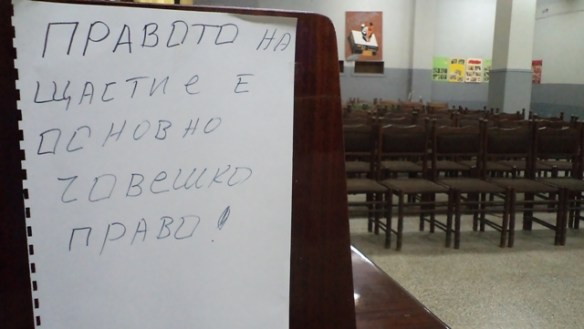 ПРАВОТО НА
ЩАСТИе Е
ОСНОВНО
човешко
ПРАВО!